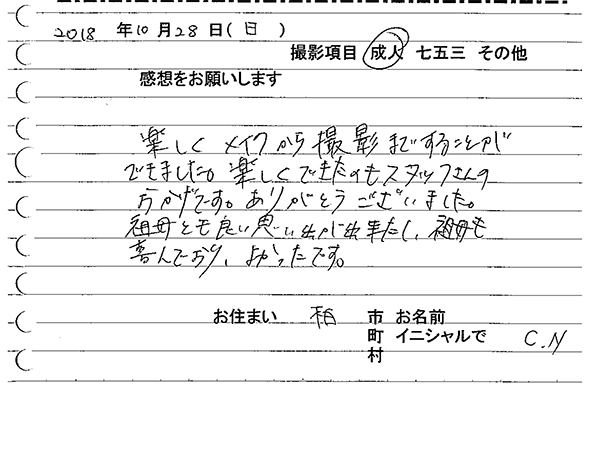 2018 年10月28日(日)
撮影項目 成人 七五三 その他
感想をお願いします
楽しくメイクから撮影まですることが
できました。楽しくできたのもスタッフさんの
おかげです。ありがとうございました。
祖母とも良い思い出が出来たし、祖母も
喜んでおり、よかったです。
お住まい 柏 市 お名前
町 イニシャルで C.N
村